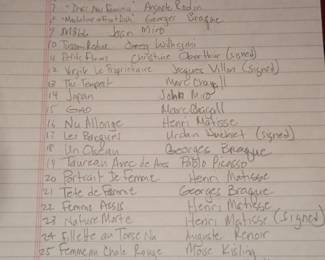 7 "Deux Nus Feminin" Auguste Rodin
8 Georges Braque
9 Joan Miro
10
11 Petite Fleurs Christine Oberthur (signed)
12 Le Proprietaire Jacques Villon (signed)
13 The Tempest Marc Chagall
14 Japan Joan Miro
15 Marc Chagall
16 Nu Allonge Henri Matisse
17 Les (signed)
18 Un Oiseau Georges Braque
19 Taureau Avec de Pablo Picasso
20 Portrait de Femme Henri Matisse
21 Tete de Femme Georges Braque
22 Femme Assis Henri Matisse
23 Nature Morte Henri Matisse (signed)
24 Fillette au Torse Nu Auguste Renoir
25 Femme au Chale Rouge Moise Kisling